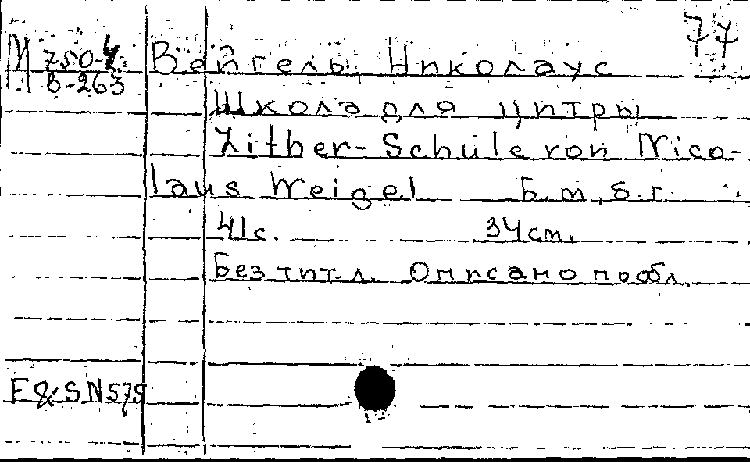 77
М 750-4 Вейгель, Николаус
В-263
Школа для цитры
Zither-Schule von Nico-
laus Weigel Б.м., б.г.
41с. 34 см.
Без тит. л. Описано по обл.
E&S N 575